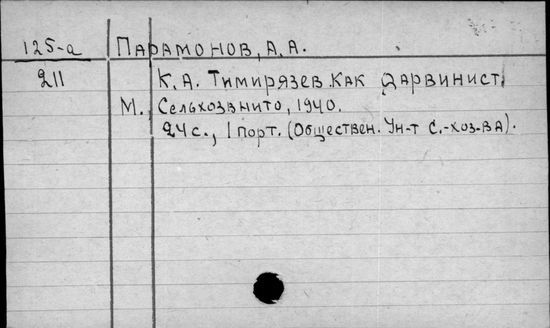 125-а Парамонов, А.А.
211 К.А. Тимирязев как дарвинист
М. Сельхозвнито, 1940.
24 с., 1 порт. (Обществен. Ун-т С.-хоз-ва).